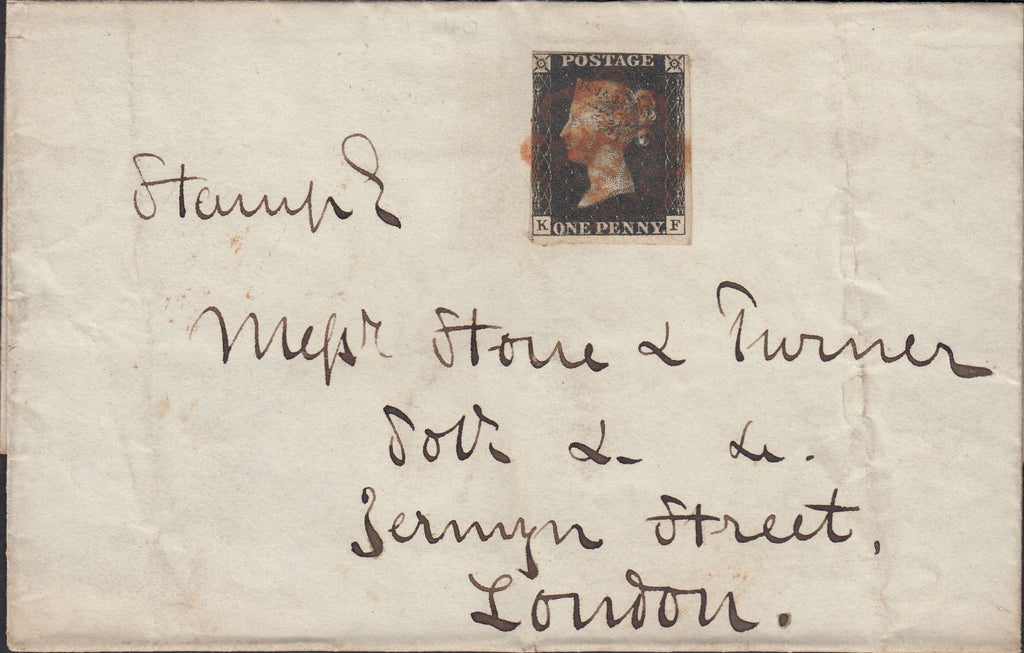 POSTAGE
K ONE PENNY. F
Stamp
Messrs Stone & Turner
Solrs & &.
Jermyn Street,
London.